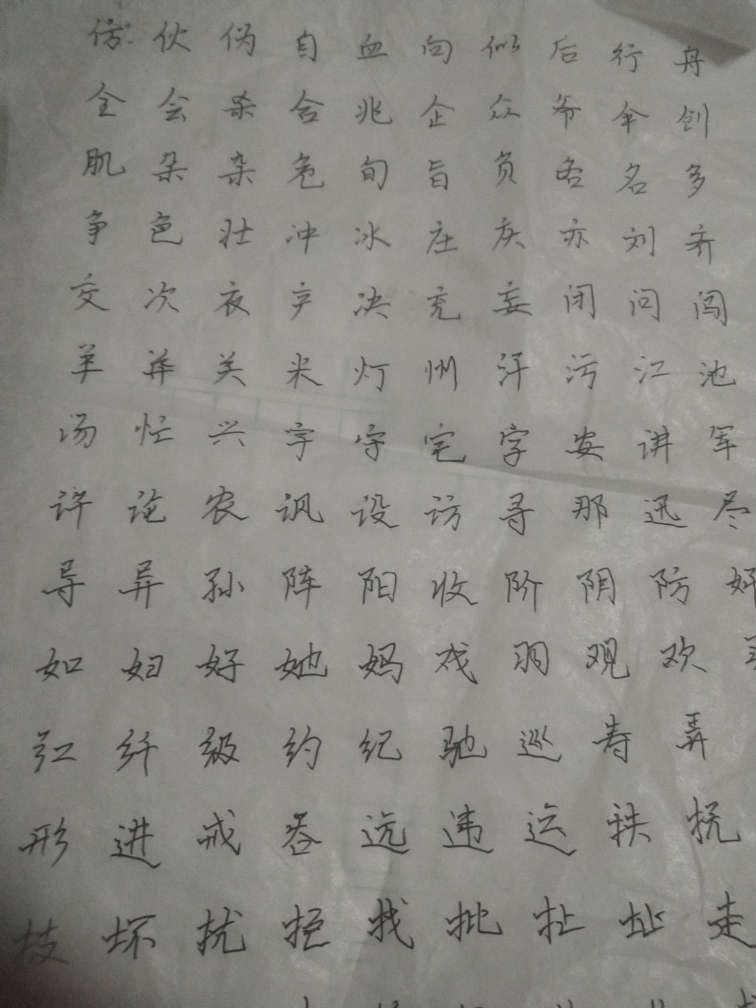 仿 伙 伪 自 血 向 似 后 行 舟
全 会 杀 合 兆 企 众 爷 伞 创
肌 朵 杂 危 旬 旨 负 各 名 多
争 色 壮 冲 冰 庄 庆 亦 刘 齐
交 次 衣 产 决 充 妄 闭 问 闯
羊 并 关 米 灯 州 汗 污 江 池
汤 忙 兴 宇 守 宅 字 安 讲 军
许 论 农 讽 设 访 寻 那 迅 尽
导 异 孙 阵 阳 收 阶 阴 防 奸
如 妇 好 她 妈 戏 羽 观 欢
红 纤 级 约 纪 驰 巡 寿 弄
形 进 戒 吞 远 违 运 扶 抚
技 坏 扰 拒 找 批 扯 址 走